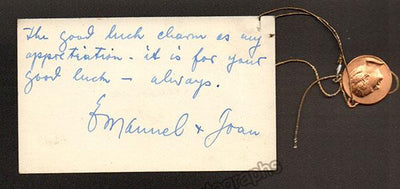 The good luck charm as my
appretiation - it is for your
good luck - always.
Emanuel + Joan